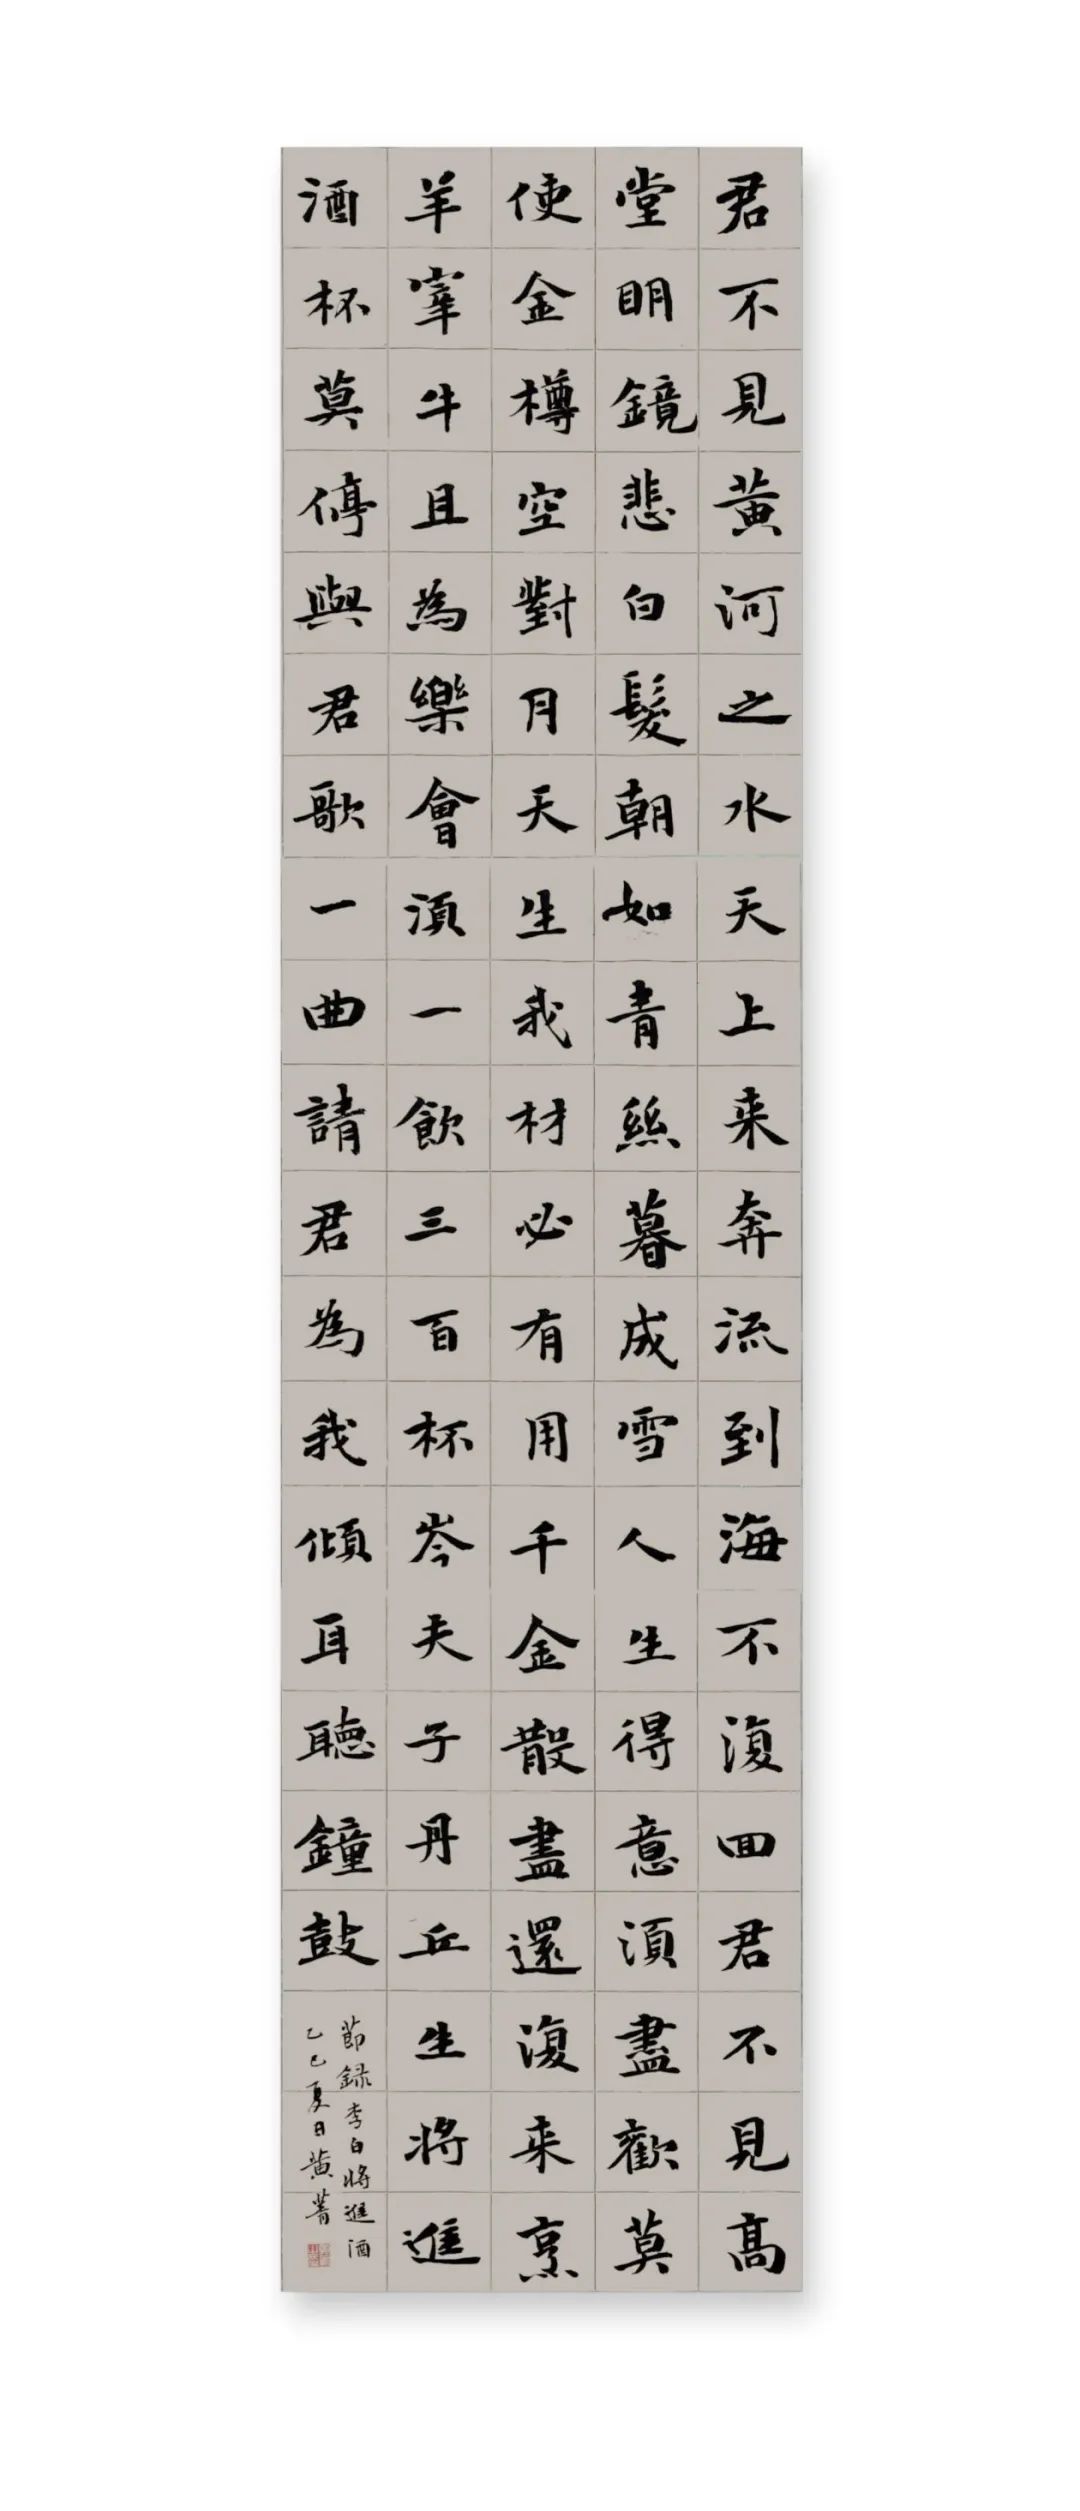 君不見黄河之水天上来奔流到海不復囬君不見高
堂眀鏡悲白髮朝如青絲暮成雪人生得意須盡歡莫
使金樽空對月天生我材必有用千金散盡還復来烹
羊宰牛且為樂會須一飲三百杯岑夫子丹丘生將進
酒杯莫停與君歌一曲請君為我傾耳聽鐘鼓
節録李白將進酒
乙巳夏日黄菁